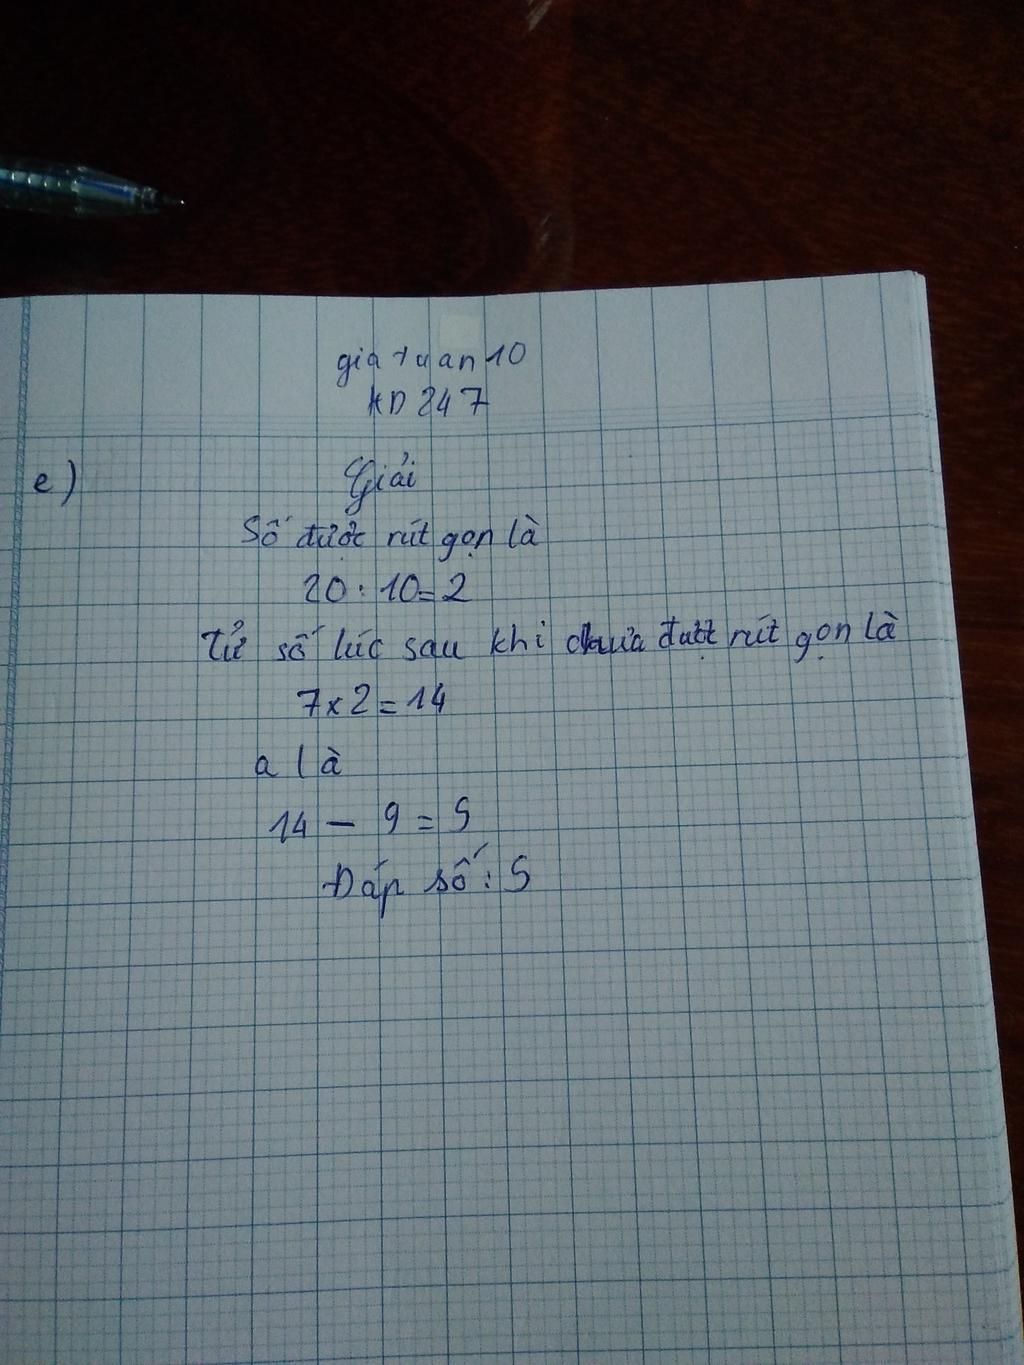 giatuan10
HD247
e) Giải
Số được rút gọn là
20 : 10 = 2
Tử số lúc sau khi chưa được rút gọn là
7 x 2 = 14
a là
14 - 9 = 5
Đáp số : 5